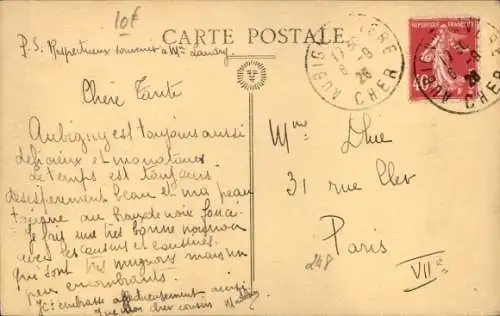 10f
CARTE POSTALE
P.S. Respectueux souvenir à Mme Landry
Chère Tante
Aubigny est toujours aussi
délicieux et monotone
le temps est toujours
désespérement beau et ma peau
tourne au brou de noix foncé
Je fais une très bonne nounou
avec les cousins et cousines
qui sont très mignons mais un
peu encombrants.
Je t'embrasse affectueusement ainsi
que mon cher cousin
AUBIGNY
CHER
28
RÉPUBLIQUE FRANÇAISE
40c
AUBIGNY
CHER
28
Mme Dhie
31 rue Cler
Paris
VIIe
248